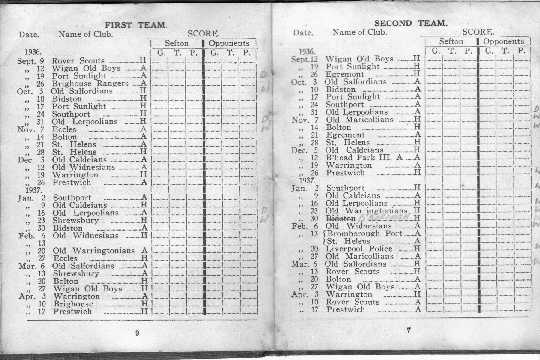 FIRST TEAM.
Date. Name of Club. SCORE.
Sefton Opponents
1936. G. T. P. G. T. P.
Sept. 9 Rover Scouts H
„ 12 Wigan Old Boys A
„ 19 Port Sunlight A
„ 26 Brighouse Rangers A
Oct. 3 Old Salfordians H
„ 10 Bidston H
„ 17 Port Sunlight H
„ 24 Southport H
„ 31 Old Lerpoolians H
Nov. 7 Eccles A
„ 14 Bolton A
„ 21 St. Helens A
„ 28 St. Helens H
Dec 5 Old Caldeians A
„ 12 Old Widnesians A
„ 19 Warrington H
„ 26 Prestwich A
1937.
Jan. 2 Southport A
„ 9 Old Caldeians H
„ 16 Old Lerpoolians A
„ 23 Shrewsbury H
„ 30 Bidston A
Feb. 6 Old Widnesians H
„ 13
„ 20 Old Warringtonians A
„ 27 Eccles H
Mar. 6 Old Salfordians A
„ 13 Shrewsbury A
„ 20 Bolton H
„ 27 Wigan Old Boys H
Apr. 3 Warrington A
„ 10 Brighouse H
„ 17 Prestwich H
SECOND TEAM.
Date. Name of Club. SCORE.
Sefton Opponents
1936. G. T. P. G. T. P.
Sept. 12 Wigan Old Boys H
„ 19 Port Sunlight H
„ 26 Egremont H
Oct. 3 Old Salfordians A
„ 10 Bidston A
„ 17 Port Sunlight A
„ 24 Southport A
„ 31 Old Lerpoolians A
Nov. 7 Old Maricollians H
„ 14 Bolton H
„ 21 Egremont A
„ 28 St. Helens H
Dec. 5 Old Caldeians H
„ 12 B'head Park III A A
„ 19 Warrington A
„ 26 Prestwich H
1937
Jan. 2 Southport H
„ 9 Old Caldeians A
„ 16 Old Lerpoolians H
„ 23 Old Warringtonians H
„ 30 Bidston H
Feb. 6 Old Widnesians A
„ 13 { Bromborough Port A
St. Helens A
„ 20 Liverpool Police H
„ 27 Old Maricollians A
Mar. 6 Old Salfordians H
„ 13 Rover Scouts H
„ 20 Bolton A
„ 27 Wigan Old Boys A
Apr. 3 Warrington H
„ 10 Rover Scouts A
„ 17 Prestwich A
7